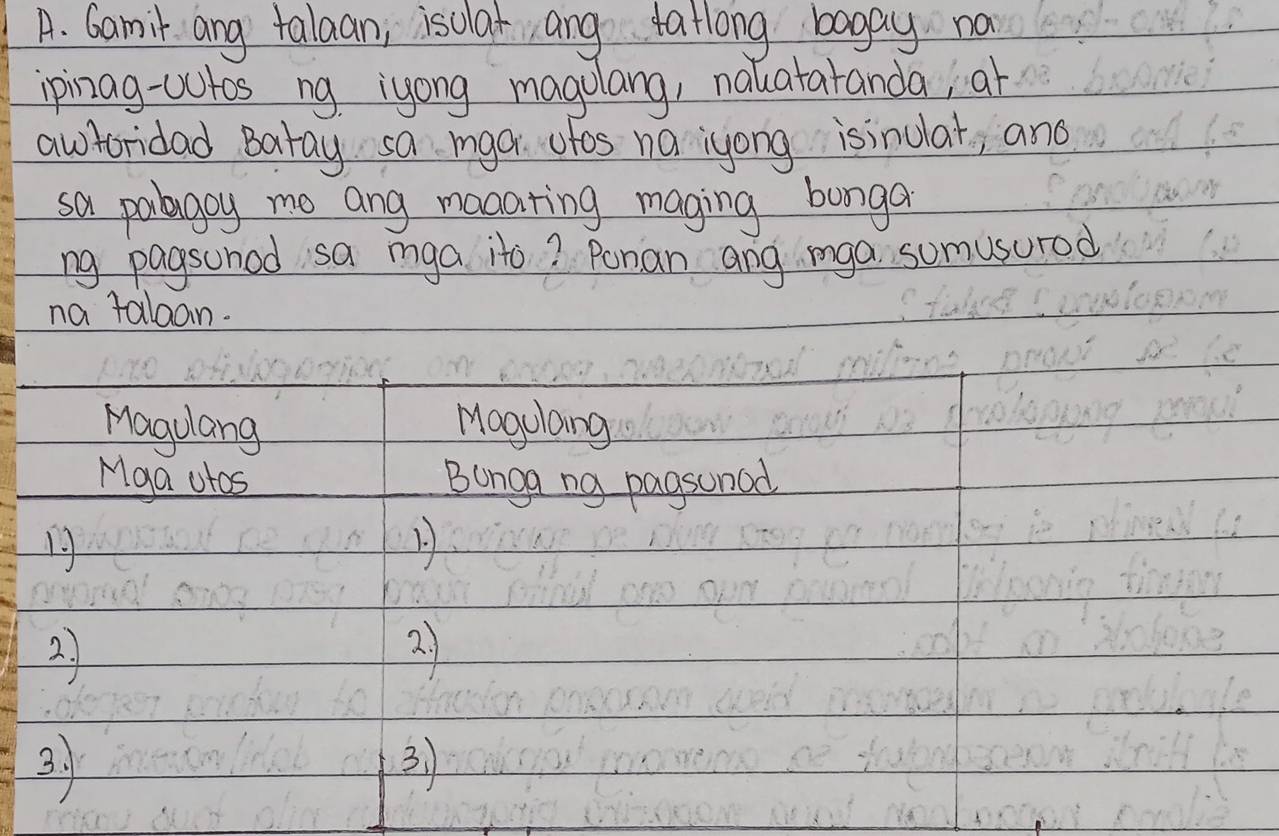 A. Gamit ang talaan, isulat ang tatlong bagay na
ipinag-uutos ng iyong magulang, nakatatanda, at
awtoridad Batay sa mga utos na iyong isinulat, ano
sa palagay mo ang maaaring maging bunga
ng pagsunod sa mga ito? Punan ang mga sumusurod
na talaan.
Magulang Magulang
Mga utos Bunga ng pagsunod
1.) 1.)
2.) 2.)
3.) 3.)